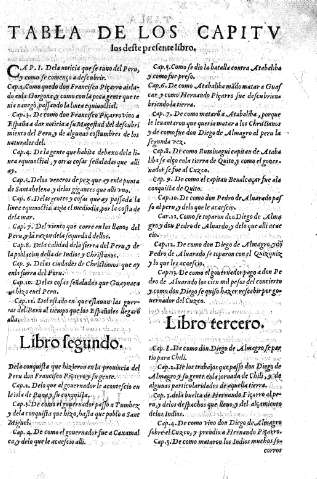 TABLA DE LOS CAPITV
los deste presente libro.
CAP. I. De la noticia que se tuuo del Peru,
Y como se començo a descubrir.
Cap. 2. Como quedo don Francisco Piçarro aisla-
do enla Gorgona y como con la poca gente que te
nia nauegó, passando la linea equinoctial.
Cap. 3. De como don Francisco Piçarro vino a
España a dar noticia a su Magestad del descubri
miento del Peru, y de algunas costumbres de los
naturales del.
Cap. 4. De la gente que habita debaxo dela li-
nea equinoctial, y otras cosas señaladas que alli
ay.
Cap. 5. Delos veneros de pez que ay enla punta
de Santa helena y delos gigantes que alli vuo.
Cap. 6. Delas gentes y cosas que ay passada la
linea equinoctial hazia el mediodia, por la costa de
dela mar.
Cap. 7. Del viento que corre en los llanos del
Peru, y la razon dela sequedad dellos.
Cap. 8. Dela calidad dela sierra del Peru, y de
la poblacion della de Indios y Christianos.
Cap. 9. De las ciudades de Christianos que ay
enla sierra del Peru.
Cap. 10. De las cosas señaladas que Guaynaca
ua hizo en el Peru.
Cap. 11. Del estado en que estauan las guerras
del Peru al tiempo que los Españoles llegarō
alla.
Libro segundo.
De la conquista que hizieron en la prouincia del
Peru don Francisco Piçarro y su gente.
Cap. 1. Delo que al gouernador le acontescio en
la isla de Puna y su conquista.
Cap. 2. De como el gouernador passo a Tumbez
y dela conquista que hizo, hasta que poblo a Sant
Miguel.
Cap. 4. De como el gouernador fue a Caxamal
ca, y delo que le acaescio alli.
Cap. 5. Como se dio la batalla contra Atabaliba
y como fue preso.
Cap. 6. De como Atabaliba mādo matar a Guas
car y como Hernando Piçarro fue descubriendo
la tierra.
Cap. 7. De como mataron a Atabaliba, porque
le leuantaron que queria matar a los Christianos
y de como fue don Diego de Almagro al peru la
segunda vez.
Cap. 8. De como Ruminagui capitan de Ataba
liba se alço enla tierra de Quito, y como el gouer-
nador se fue al Cuzco.
Cap. 9. De como el capitan Benalcaçar fue ala
conquista de Quito.
Cap. 10. De como don Pedro de Aluarado pas
so al peru, y delo que le acaescio.
Cap. 11. Como se toparon don Diego de Alma
gro y don Pedro de Aluarado, y delo que alli acaes
cio.
Cap. 12. De como don Diego de Almagro y dō
Pedro de Aluarado se toparon con el Quizquiz
y lo que les acaescio.
Cap. 13. De como el gouernador pago a don Pe
dro de Aluarado los cien mil pesos del concierto
y como don Diego se quiso hazer rescebir por go-
uernador del Cuzco.
Libro tercero.
Cap. 1. De como don Diego de Almagro se par
tio para Chili.
Cap. 2. De los trabajos que passo don Diego de
Almagro y su gente enla jornada de Chili, y de
algunas particularidades de aquella tierra.
Cap. 3. dela buelta de Hernando Piçarro al pe-
ru, y delos despachos que lleuo y del alçamiento
delos Indios.
Cap. 4. De como vino don Diego de Almagro
sobre el Cuzco, y prendio a Hernando Piçarro.
Cap. 5. De como mataron los Indios muchos so-
corros